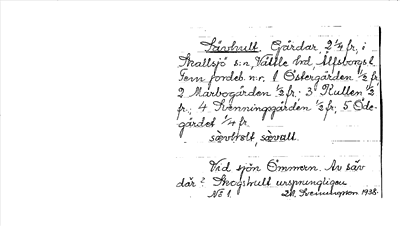 Sävhult. Gårdar, 2 1/4 fr, i
Skallsjö s:n, Vättle hd, Älfsborgs l.
Fem fordeb. n:r. 1 Östergården 1/2 fr,
2 Marbogården 1/2 fr; 3 Kullen 1/2
fr; 4 Svenningsgården 1/2 fr; 5 Öde-
gärdet 1/4 fr.
sævhult, sævalt.
Vid sjön Ömmern. Av säv
där? Skogshult ursprungligen
No 1. Svenningson 1938.